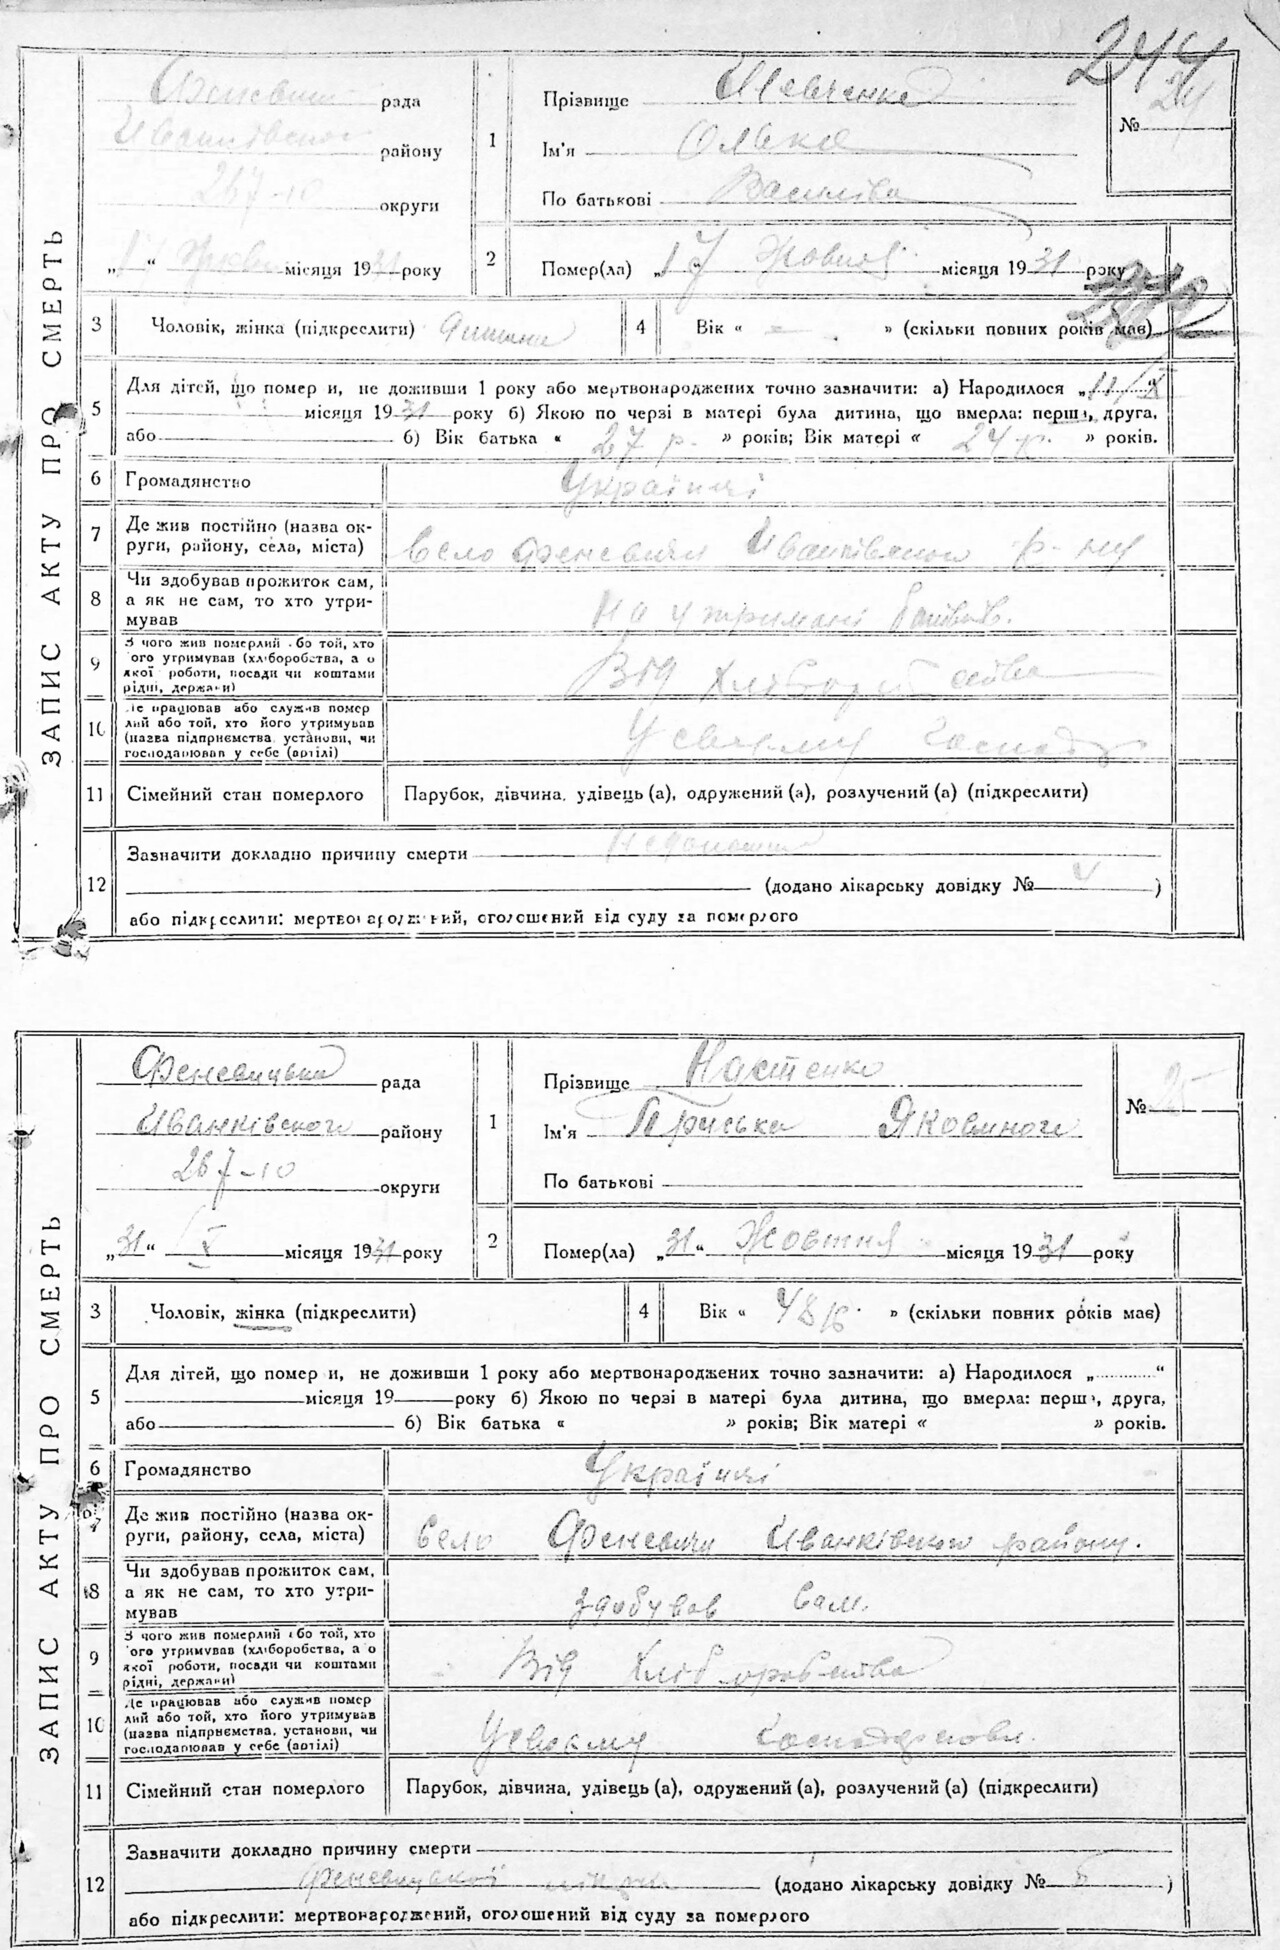 244
ЗАПИС АКТУ ПРО СМЕРТЬ
рада
району
267-10 округи
місяця 1931 року
1
Прізвище Шевченко
Ім'я Олька
По батькові Василівна
№ 24
2
Помер(ла) „17“ Жовтня місяця 1931 року
3
Чоловік, жінка (підкреслити)
4
Вік « – » (скільки повних років має)
5
Для дітей, що померли, не доживши 1 року або мертвонароджених точно зазначити: а) Народилося „11/X“
місяця 1931 року б) Якою по черзі в матері була дитина, що вмерла: перша, друга,
або б) Вік батька « 27 р. » років; Вік матері « 24 р. » років.
6
Громадянство
Україні
7
Де жив постійно (назва округи, району, села, міста)
село Феневичи Иванківського р-ну
8
Чи здобував прожиток сам,
а як не сам, то хто утримував
На утримані батьків.
9
З чого жив померлий або той, хто
його утримував (хліборобства, а о
якої роботи, посади чи коштами
рідні, держави)
Від хліборобства
10
Де працював або служив помер
лий або той, хто його утримував
(назва підприємства, установи, чи
господарював у себе (артілі)
У своєму господ
11
Сімейний стан померлого
Парубок, дівчина, удівець (а), одружений (а), розлучений (а) (підкреслити)
12
Зазначити докладно причину смерти
(додано лікарську довідку № )
або підкреслити: мертвонароджений, оголошений від суду за померлого
ЗАПИС АКТУ ПРО СМЕРТЬ
Феневицька рада
Иванківського району
267-10 округи
„31“ X місяця 1931 року
1
Прізвище Настенко
Ім'я Приська Яковинога
По батькові
№ 25
2
Помер(ла) „31“ Жовтня місяця 1931 року
3
Чоловік, жінка (підкреслити)
4
Вік « 48 р. » (скільки повних років має)
5
Для дітей, що померли, не доживши 1 року або мертвонароджених точно зазначити: а) Народилося „ “
місяця 19 року б) Якою по черзі в матері була дитина, що вмерла: перша, друга,
або б) Вік батька « » років; Вік матері « » років.
6
Громадянство
Україні
7
Де жив постійно (назва округи, району, села, міста)
село Феневичи Иванківського району.
8
Чи здобував прожиток сам,
а як не сам, то хто утримував
здобував сам.
9
З чого жив померлий або той, хто
його утримував (хліборобства, а о
якої роботи, посади чи коштами
рідні, держави)
Від хліборобства
10
Де працював або служив помер
лий або той, хто його утримував
(назва підприємства, установи, чи
господарював у себе (артілі)
У своєму господарстві.
11
Сімейний стан померлого
Парубок, дівчина, удівець (а), одружений (а), розлучений (а) (підкреслити)
12
Зазначити докладно причину смерти
Феневицької (додано лікарську довідку № )
або підкреслити: мертвонароджений, оголошений від суду за померлого